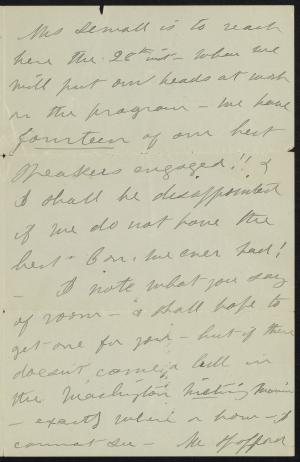 Mrs Sewall is to reach
here the 28th inst - when we
will put our heads at work
on the program - we have
fourteen of our best
speakers engaged!! &
I shall be disappointed
if we do not have the
best Con. we ever had!
- I note what you say
of room - & shall hope to
get one for you - but if there
doesn't come a lull in
the Washington
- exactly where or how - I
cannot see - Mr Spofford